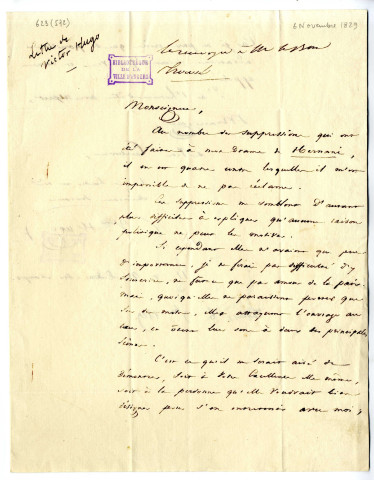 629 (572)
6 Novembre 1829
Lettre de
Victor Hugo
Je renvoye à Mr le Bon
Trouvé
BIBLIOTHÈQUE
DE LA
VILLE DU HAVRE
Monseigneur,
Au nombre des suppressions qui ont
été faites à mon Drame de Hernani,
il en est quatre contre lesquelles il m'est
impossible de ne pas réclamer.
Ces suppressions me semblent d'autant
plus difficiles à expliquer qu'aucune raison
politique ne peut les motiver.
Si cependant elles n'avaient que peu
d'importance, je ne ferais pas difficulté d'y
souscrire, ne fût-ce que par amour de la paix.
mais, quoiqu'elles ne paraissent porter que
sur des mots, elles attaquent l'ouvrage au
cœur, et deux des principales
scènes.
C'est ce qu'il me serait aisé de
démontrer, soit à Votre Excellence elle même,
soit à la personne qu'elle voudrait bien
désigner pour s'en entretenir avec moi,